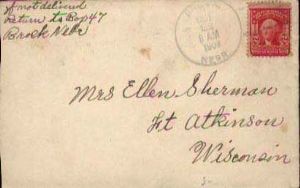 if not delivered
return to Box 47
Brock Nebr
8 AM
NEBR
Mrs Ellen Sherman
Ft Atkinson
Wisconsin